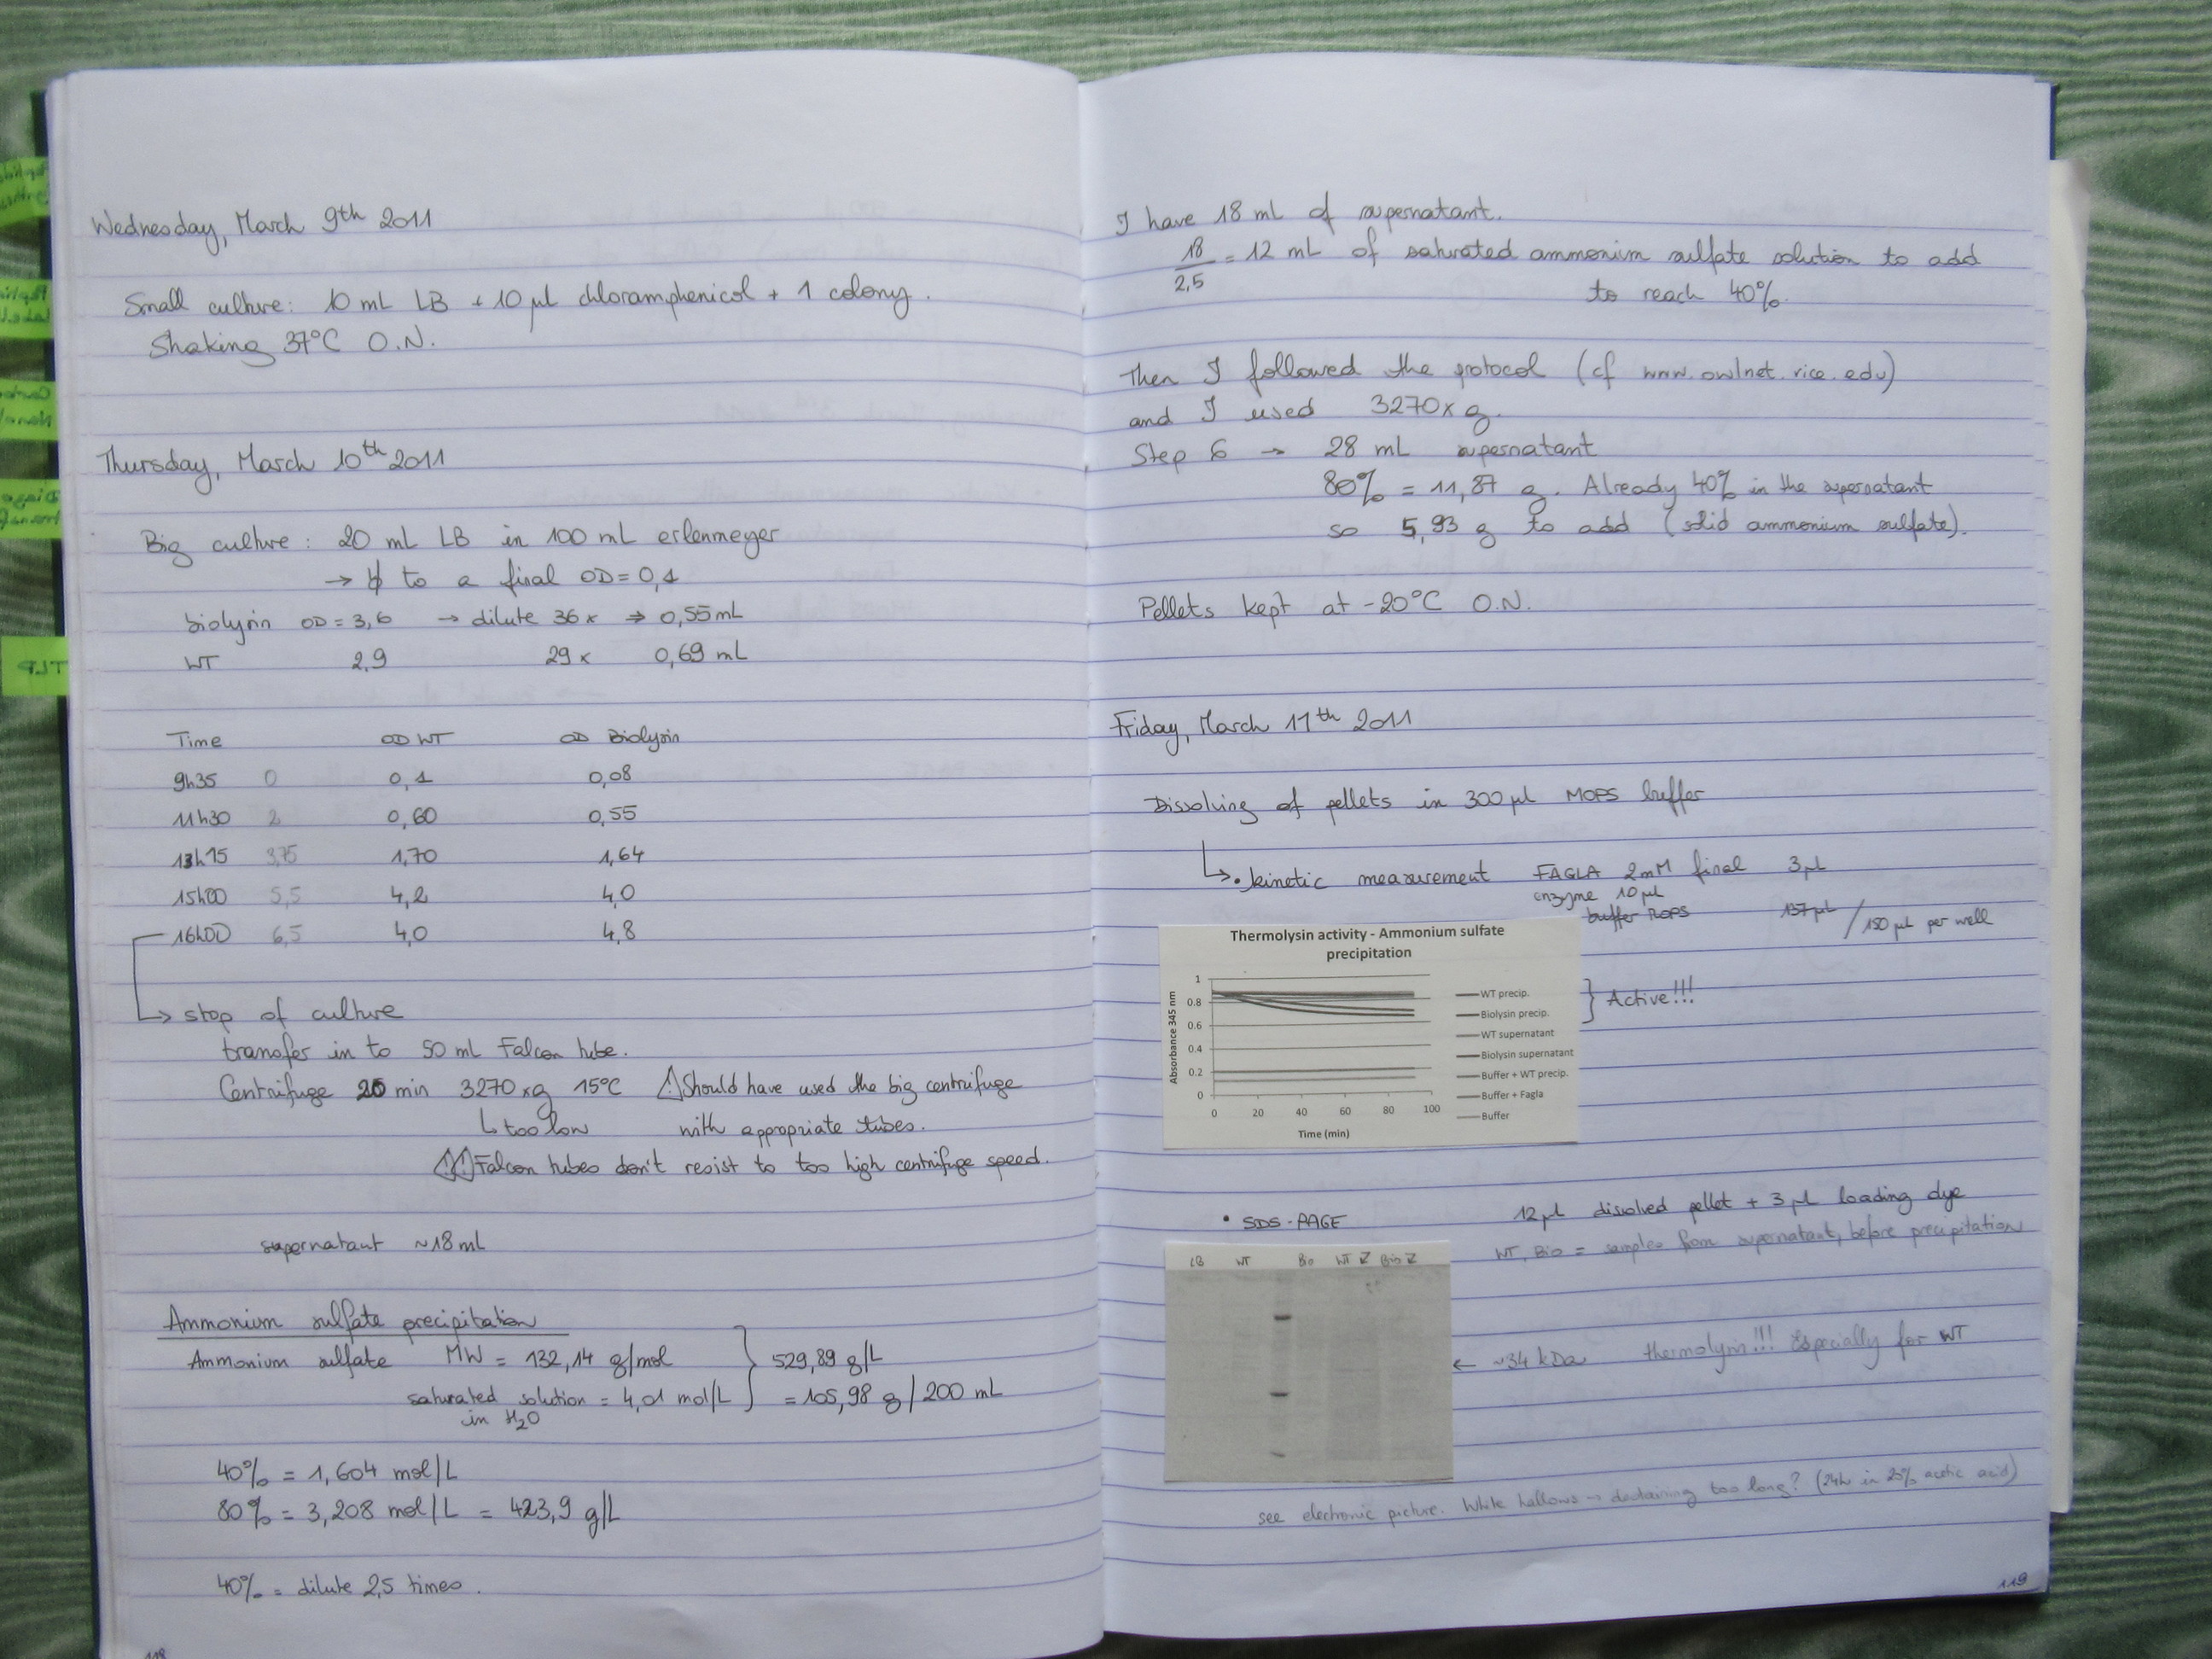 Wednesday, March 9th 2011
Small culture: 10 mL LB + 10 µl chloramphenicol + 1 colony.
Shaking 37°C O.N.
Thursday, March 10th 2011
Big culture: 20 mL LB in 100 mL erlenmeyer
→ to a final OD = 0,1
biolysin OD = 3,6 → dilute 36 x ⇒ 0,55 mL
WT 2,9 29 x 0,69 mL
Time OD WT OD Biolysin
9h35 0 0,1 0,08
11h30 2 0,60 0,55
13h15 3,75 1,70 1,64
15h00 5,5 4,2 4,0
16h00 6,5 4,0 4,8
→ stop of culture
transfer in to 50 mL Falcon tube.
Centrifuge 20 min 3270 xg 15°C ⚠ Should have used the big centrifuge
↳ too low with appropriate tubes.
⚠ Falcon tubes don't resist to too high centrifuge speed.
supernatant ~18 mL
Ammonium sulfate precipitation
Ammonium sulfate MW = 132,14 g/mol } 529,89 g/L
saturated solution = 4,01 mol/L } = 105,98 g / 200 mL
in H2O
40% = 1,604 mol/L
80% = 3,208 mol/L = 423,9 g/L
40% = dilute 2,5 times.
118
I have 18 mL of supernatant.
18/2,5 = 12 mL of saturated ammonium sulfate solution to add
to reach 40%.
Then I followed the protocol (cf www.owlnet.rice.edu)
and I used 3270 x g.
Step 6 → 28 mL supernatant
80% = 11,87 g. Already 40% in the supernatant
so 5,93 g to add (solid ammonium sulfate).
Pellets kept at -20°C O.N.
Friday, March 11th 2011
Dissolving of pellets in 300 µl MOPS buffer
↳ • kinetic measurement FAGLA 2mM final 3 µl
enzyme 10 µl
buffer MOPS 137 µl / 150 µl per well
Thermolysin activity - Ammonium sulfate
precipitation
Absorbance 345 nm
1
0.8
0.6
0.4
0.2
0
0 20 40 60 80 100
Time (min)
WT precip.
Biolysin precip.
WT supernatant
Biolysin supernatant
Buffer + WT precip.
Buffer + Fagla
Buffer
} Active!!!
• SDS-PAGE
12 µl dissolved pellet + 3 µl loading dye
WT, Bio = samples from supernatant, before precipitation
LB WT Bio WT Bio
← ~34 kDa thermolysin!!! Especially for WT
see electronic picture. White hallows → destaining too long? (24h in 25% acetic acid)
119
TLP